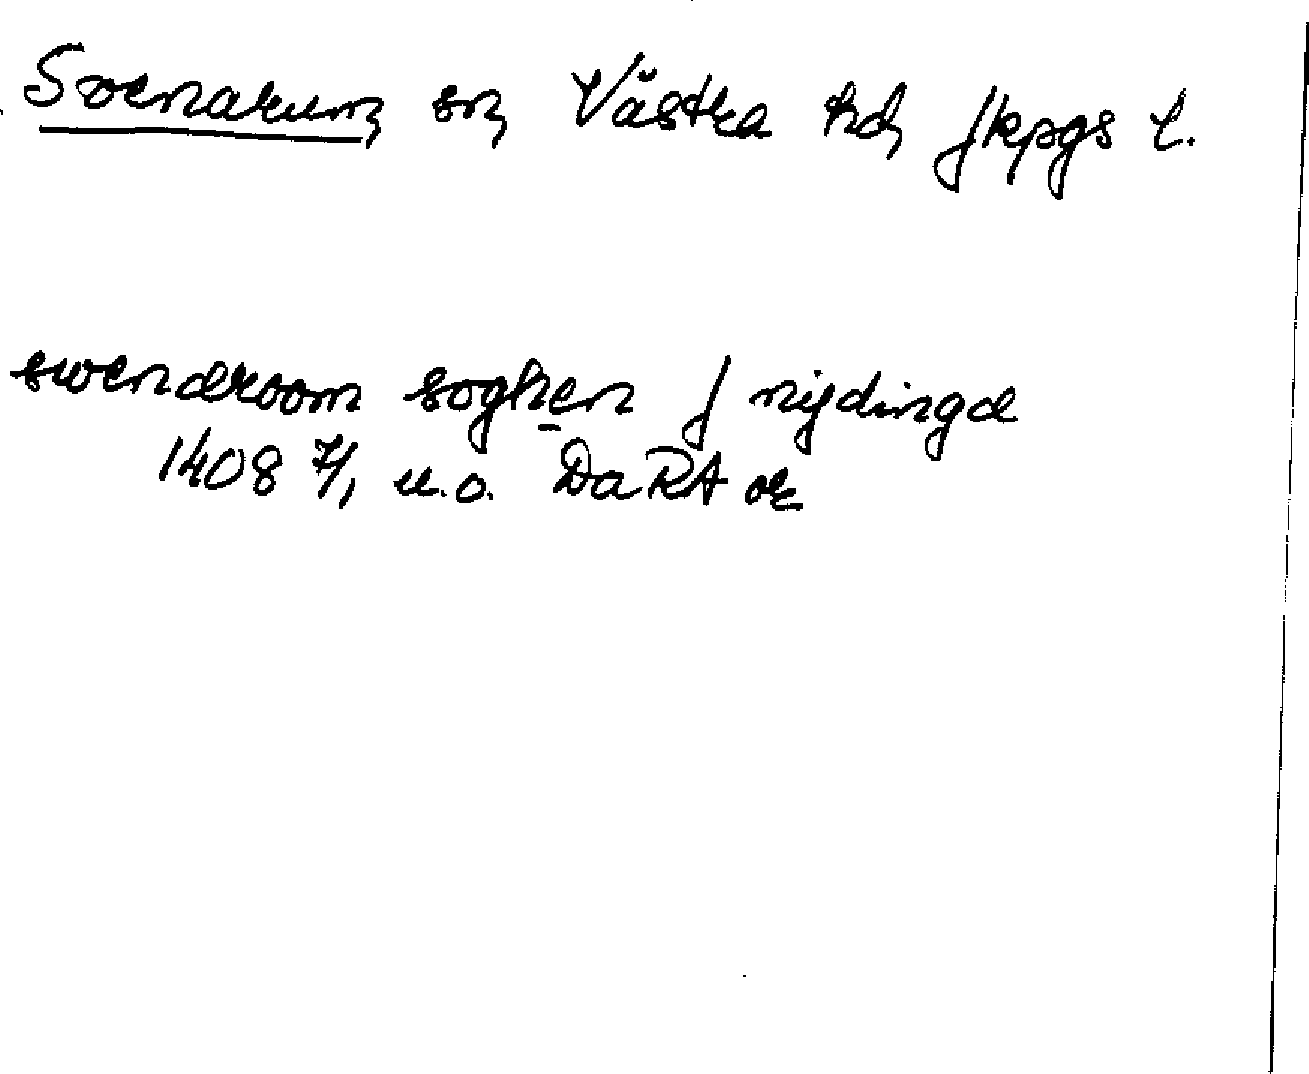 Svenarum sn Västra hd Jkpgs l.
swenderoom soghen J nijdinge
1408 7/1 u.o. DaRA or